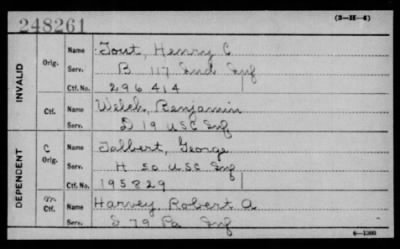 248261
(3—H—4)
INVALID
Orig. Name Tout, Henry C
Serv. B 117 Ind Inf
Ctf. No. 296414
Ctf. Name Welch, Benjamin
Serv. D 19 U S C Inf
DEPENDENT
C Orig. Name Talbert, George
Serv. H 50 U S C Inf
Ctf. No. 195829
Ctf. Name Harvey, Robert A
Serv. 79 Pa Inf
6—1300